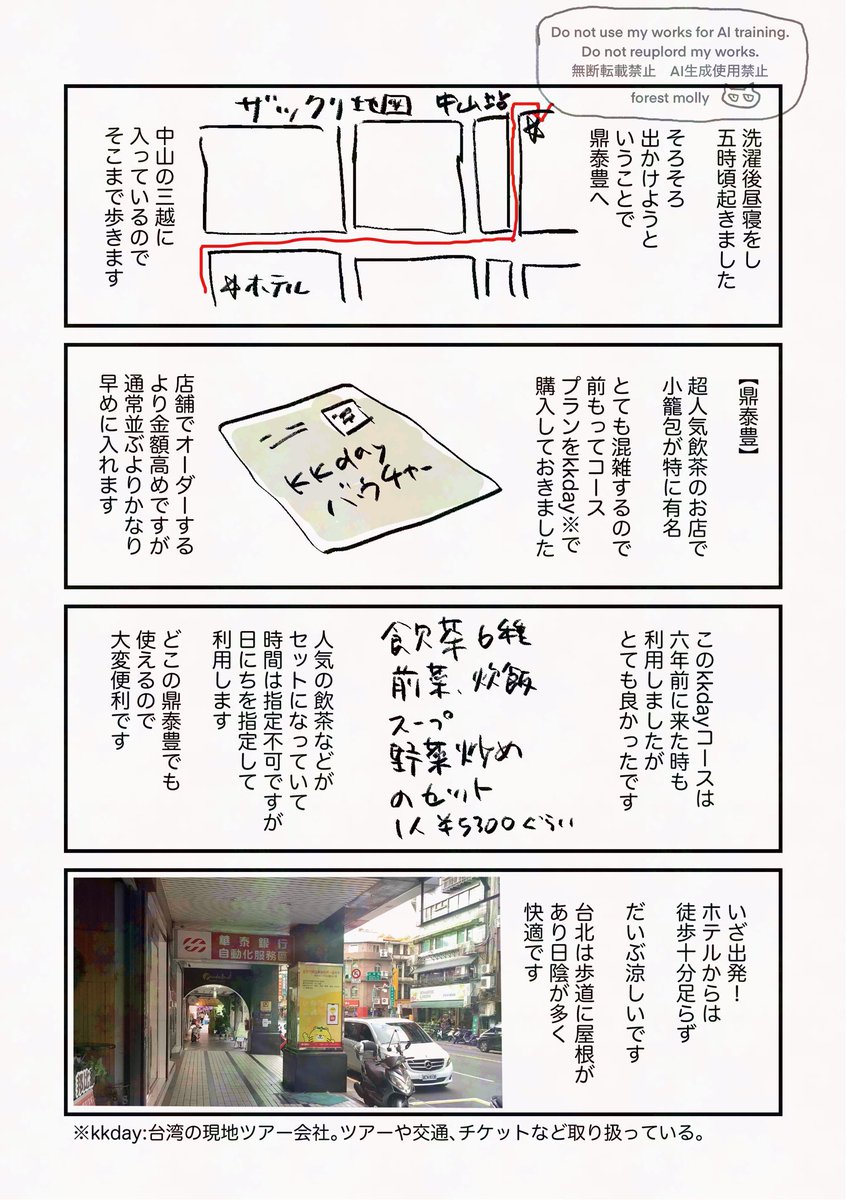 Do not use my works for AI training.
Do not reuplord my works.
無断転載禁止　AI生成使用禁止
forest molly
洗濯後昼寝をし
五時頃起きました
そろそろ
出かけようと
いうことで
鼎泰豊へ
ザックリ地図
中山站
ホテル
中山の三越に
入っているので
そこまで歩きます
【鼎泰豊】
超人気飲茶のお店で
小籠包が特に有名
とても混雑するので
前もってコース
プランをkkday※で
購入しておきました
KKday
バウチャー
店舗でオーダーする
より金額高めですが
通常並ぶよりかなり
早めに入れます
このkkdayコースは
六年前に来た時も
利用しましたが
とても良かったです
飲茶6種
前菜、炊飯
スープ
野菜炒め
のセット
1人¥5300ぐらい
人気の飲茶などが
セットになっていて
時間は指定不可ですが
日にちを指定して
利用します
どこの鼎泰豊でも
使えるので
大変便利です
いざ出発！
ホテルからは
徒歩十分足らず
だいぶ涼しいです
台北は歩道に屋根が
あり日陰が多く
快適です
華泰銀行
自動化服務區
※kkday:台湾の現地ツアー会社。ツアーや交通、チケットなど取り扱っている。